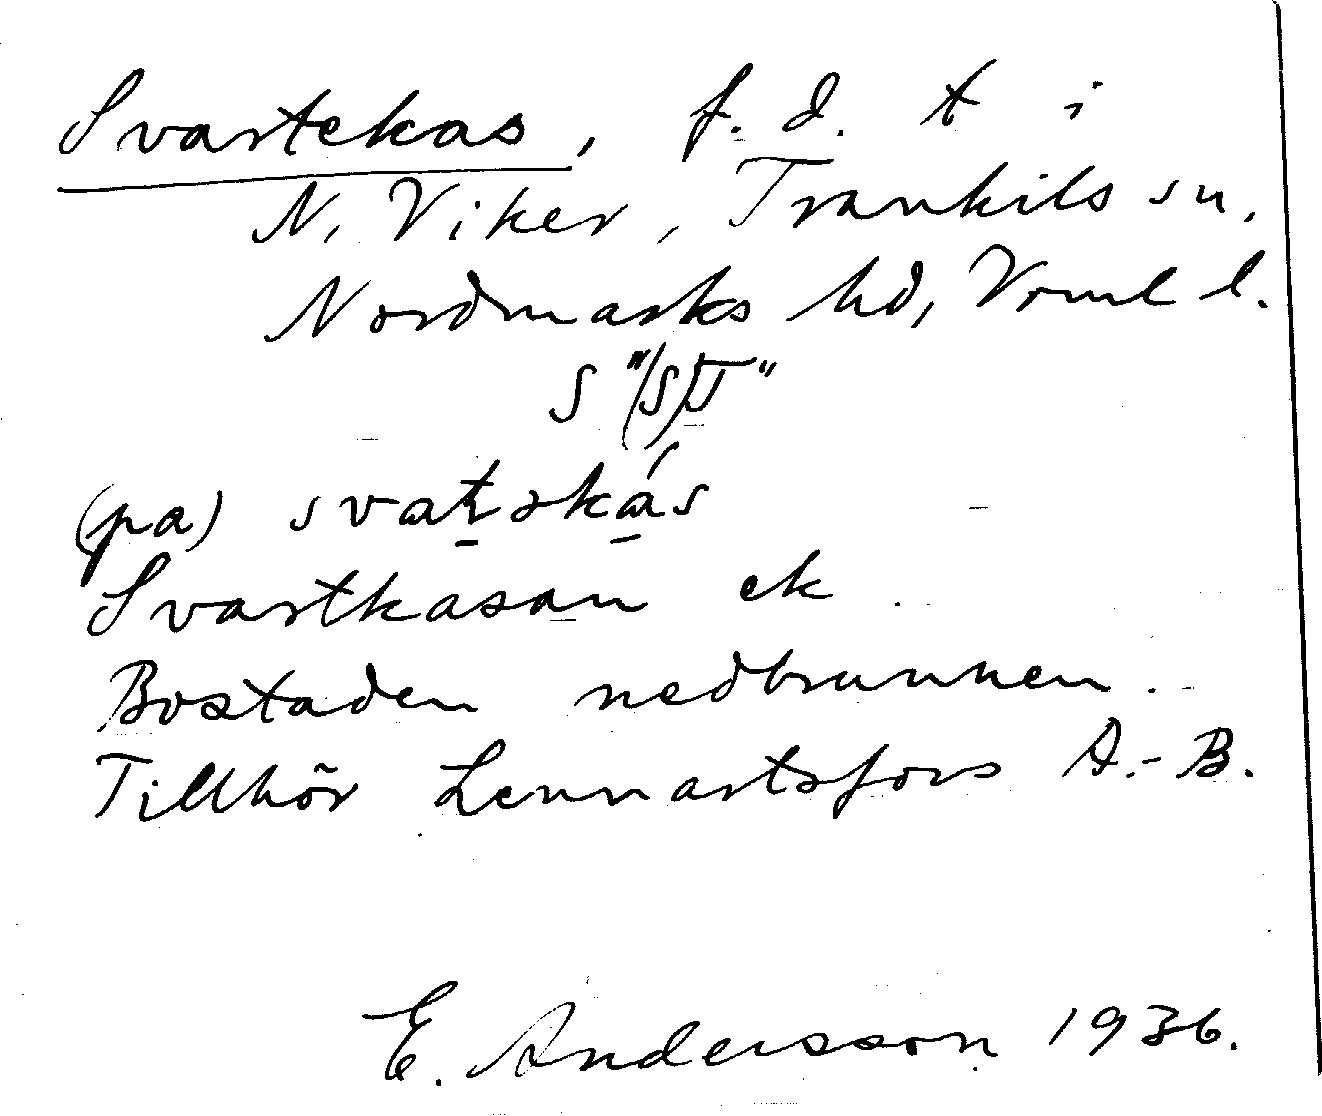 Svartekas, f. d. t i
N. Viker, Trankils sn,
Nordmarks hd, Vrml l.
S "/S/T"
(pa) svaṯəkás
Svartkasan ek
Bostaden nedbrunnen.
Tillhör Lennartsfors A.-B.
E. Andersson 1936.